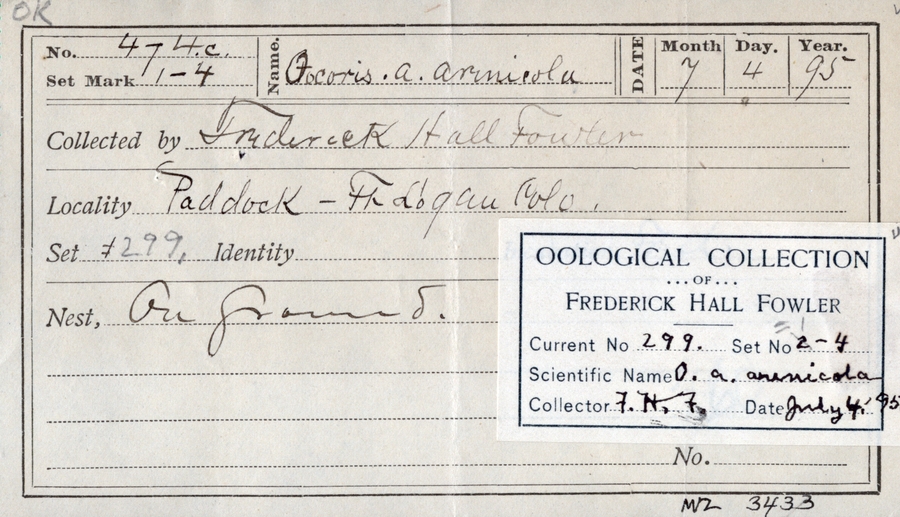 OK
No. 474.c. Name. Otocoris. a. arenicola DATE Month 7 Day. 4 Year. 95
Set Mark 1-4
Collected by Frederick Hall Fowler
Locality Paddock - Ft Logan Colo.
Set #299. Identity
Nest, On ground.
OOLOGICAL COLLECTION
...OF...
FREDERICK HALL FOWLER
Current No 299. Set No 2-4
Scientific Name O. a. arenicola
Collector F. H. F. Date July 4, 95
No.
MVZ 3433